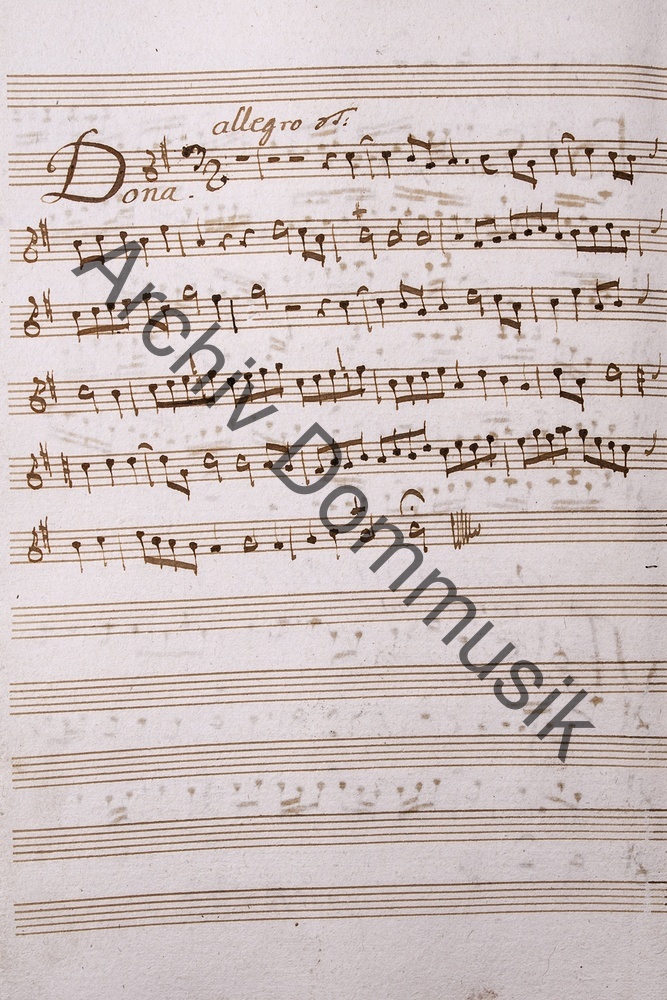 allegro
Dona.
Archiv Dommusik